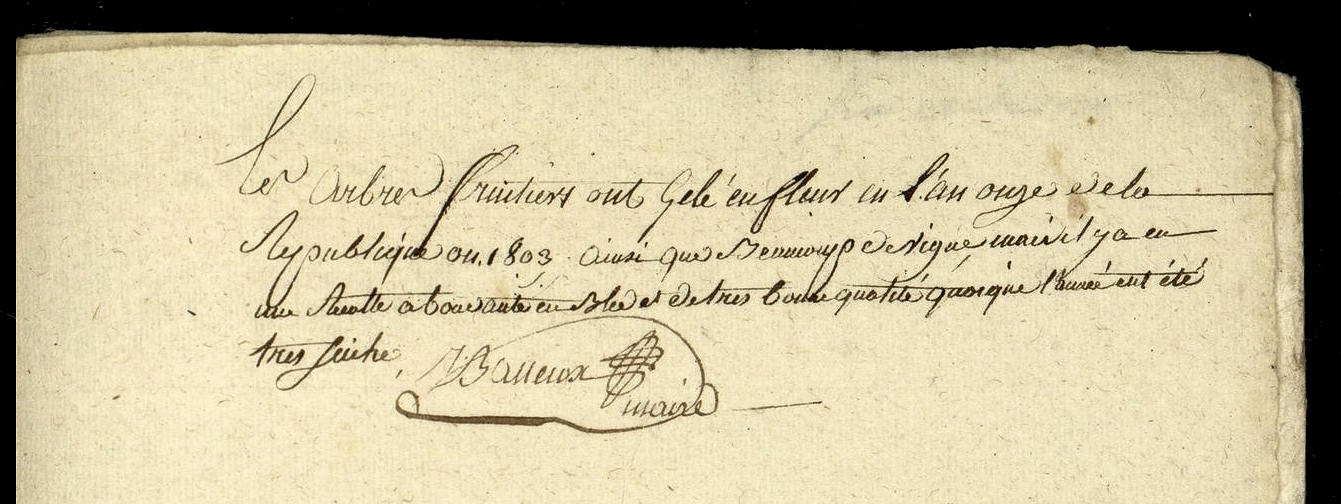 Les Arbres fruitiers ont Gelé en fleur en l'an onze de la
Republique ou 1803 ainsi que Beaucoup de vigne mais il y a eu
une Recolte abondante en Blee et de tres bonne qualité quoique l'année eut été
tres seiche,
maire